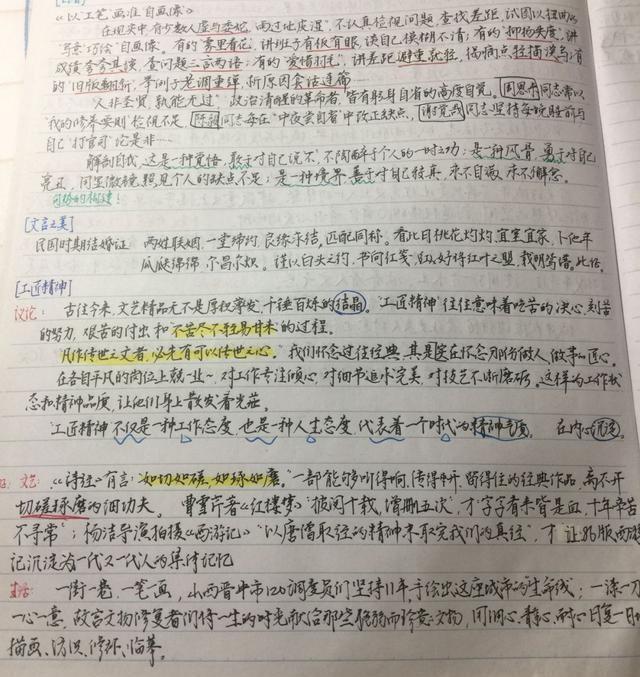 《以工笔画准自画像》
在现实中,有少数人虚与委蛇,“雨过地皮湿”,不认真检视问题,查找差距,试图以扭曲的
写意“巧绘”自画像。有的“雾里看花”,讲班子有板有眼,谈自己模糊不清;有的“抑扬失度”,讲
成绩夸夸其谈,查问题三言两语;有的“爱惜羽毛”,讲差距避重就轻,揭病点轻描淡写;有
的“旧版翻新”,举例子老调重弹,析原因套话连篇
人非圣贤,孰能无过”政治清醒的革命者,皆有躬身自省的高度自觉。周恩来同志常以
“我的修养要则”检视不足,陈毅同志每在“中夜尝自省”中改正缺点,谢觉哉同志坚持每晚睡前与
自己“打官司”
解剖自我,这是一种觉悟,敢于对自己说不,不陶醉于个人的一时之功;是一种风骨,勇于对自己
亮丑,同显微镜照见个人的缺点不足;是一种境界,善于对自己较真,永不自满,永不懈怠。
[文言之美]
民国时期结婚证 两姓联姻,一堂缔约,良缘永结,匹配同称。看此日桃花灼灼,宜室宜家,卜他年
瓜瓞绵绵,尔昌尔炽。谨以白头之约,书向红笺,好将红叶之盟,载明鸳谱。此证
[工匠精神]
议论: 古往今来,文艺精品无不是厚积薄发,千锤百炼的结晶。“工匠精神”往往意味着吃苦的决心,刻苦
的努力,艰苦的付出和“不苦尽不轻易甘来”的过程。
“凡作传世之文者,必先有可以传世之心。”我们怀念过往经典,其是在怀念那份做人、做事的匠心。
在各自平凡的岗位上兢业~,对工作专注倾心,对细节追求完美,对技艺不断磨砺。这样的工作状
态和精神品质,让他们身上散发着光茫。
“工匠精神”不仅是一种工作态度,也是一种人生态度,代表着一个时代的精神气质。 在内心沉淀
文艺:《诗经》有言:“如切如磋,如琢如磨。”一部能够叫得响,传得开,留得住的经典作品,离不开
切磋琢磨的细功夫。曹雪芹著《红楼梦》“披阅十载,增删五次”,才“字字看来皆是血,十年辛苦
不寻常”;杨洁导演拍摄《西游记》“以唐僧取经的精神来取完我们的真经”,才让86版西游
记沉淀为一代又一代人的集体记忆
生活:一街一巷,一笔一画,山西晋中市120调度员们坚持11年手绘出这座城市的生命线;一漆一刀
一心一意,故宫文物修复者们倾一生的时光献给那些脆弱而珍贵文物,用细心、静心、耐心日复一日
描画、修补、临摹。